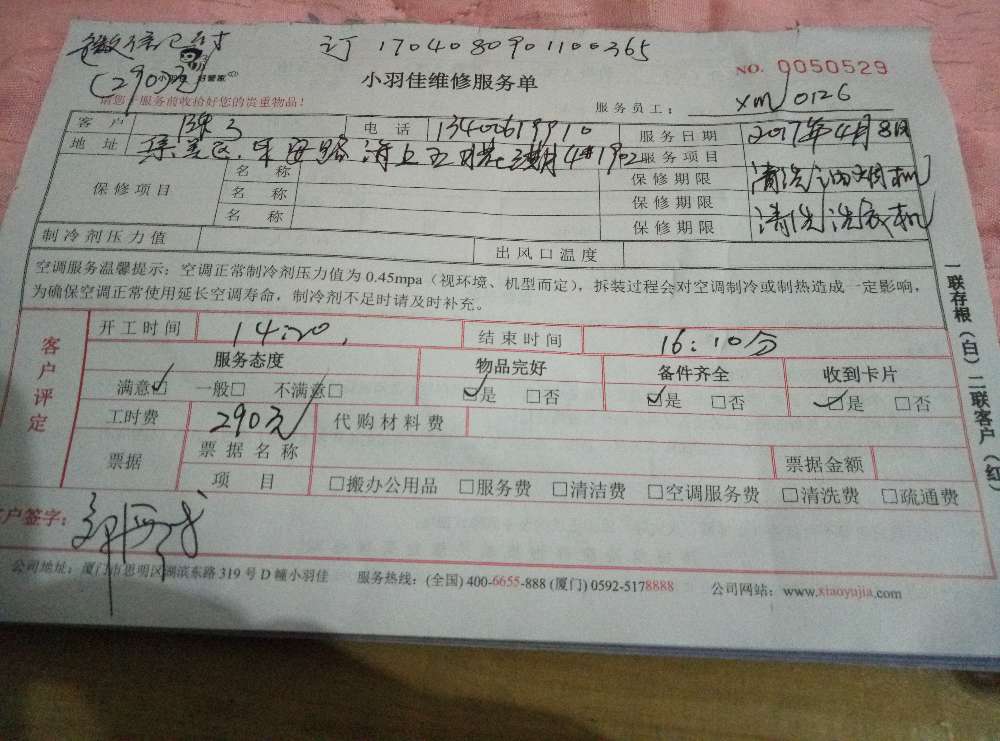 微信已付 订 1704080901100365
(290元) 小羽佳 好管家 NO. 0050529
小羽佳维修服务单
请您于服务前收拾好您的贵重物品! 服务员工: xm 0126
客户 电话 服务日期 2017年4月8日
地址 集美区 海上五月花 4#1902 服务项目 清洗油烟机
保修项目 名称 保修期限 清洗洗衣机
名称 保修期限
名称 保修期限
制冷剂压力值 出风口温度
空调服务温馨提示:空调正常制冷剂压力值为 0.45mpa(视环境、机型而定),拆装过程会对空调制冷或制热造成一定影响,
为确保空调正常使用延长空调寿命,制冷剂不足时请及时补充。
客户评定 开工时间 14:20 结束时间 16:10分
服务态度 物品完好 备件齐全 收到卡片
满意☑ 一般□ 不满意□ ☑是 □否 ☑是 □否 ☑是 □否
工时费 290元 代购材料费
票据 票据名称 票据金额
项目 □搬办公用品 □服务费 □清洁费 □空调服务费 □清洗费 □疏通费
客户签字:
公司地址:厦门市思明区湖滨东路 319 号 D 幢小羽佳 服务热线:(全国) 400-6655-888 (厦门) 0592-5178888 公司网站:www.xiaoyujia.com
一联存根(白) 二联客户(红)